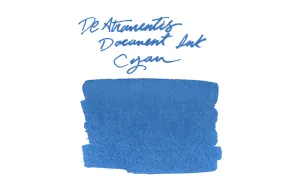 De Atramentis
Document Ink
Cyan